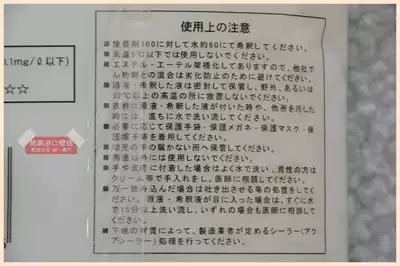 使用上の注意
接着剤100に対して水約60にて希釈してください。
気温5℃以下では使用しないでください。
エステル・エーテル架橋化してありますので、他社で
ん粉糊との混合は劣化防止のために避けてください。
・希釈した液は密封して保管し、野外、あるいは
℃以上の高温の所に放置しないでください。
衣類に原液・希釈した液が付いた時や、他所を汚した
時には、直ちに水で洗い流してください。
必要に応じて保護手袋・保護メガネ・保護マスク・保
護帽子等を着用してください。
幼児の手の届かない所へ保管してください。
用途以外には使用しないでください。
手や皮膚に付着した場合はよく水で洗い、荒性の方は
クリーム等で手入れをし、医師に相談してください。
万一飲み込んだ場合は吐き出させる等の処置をしてく
ださい。原液・希釈液が目に入った場合は、すぐに水
で15分以上洗い流し、いずれの場合も医師に相談して
ください。
下地の材質によって、製造業者が定めるシーラー(アク
アシーラー)処理を行ってください。
.1mg/ℓ以下)
☆☆